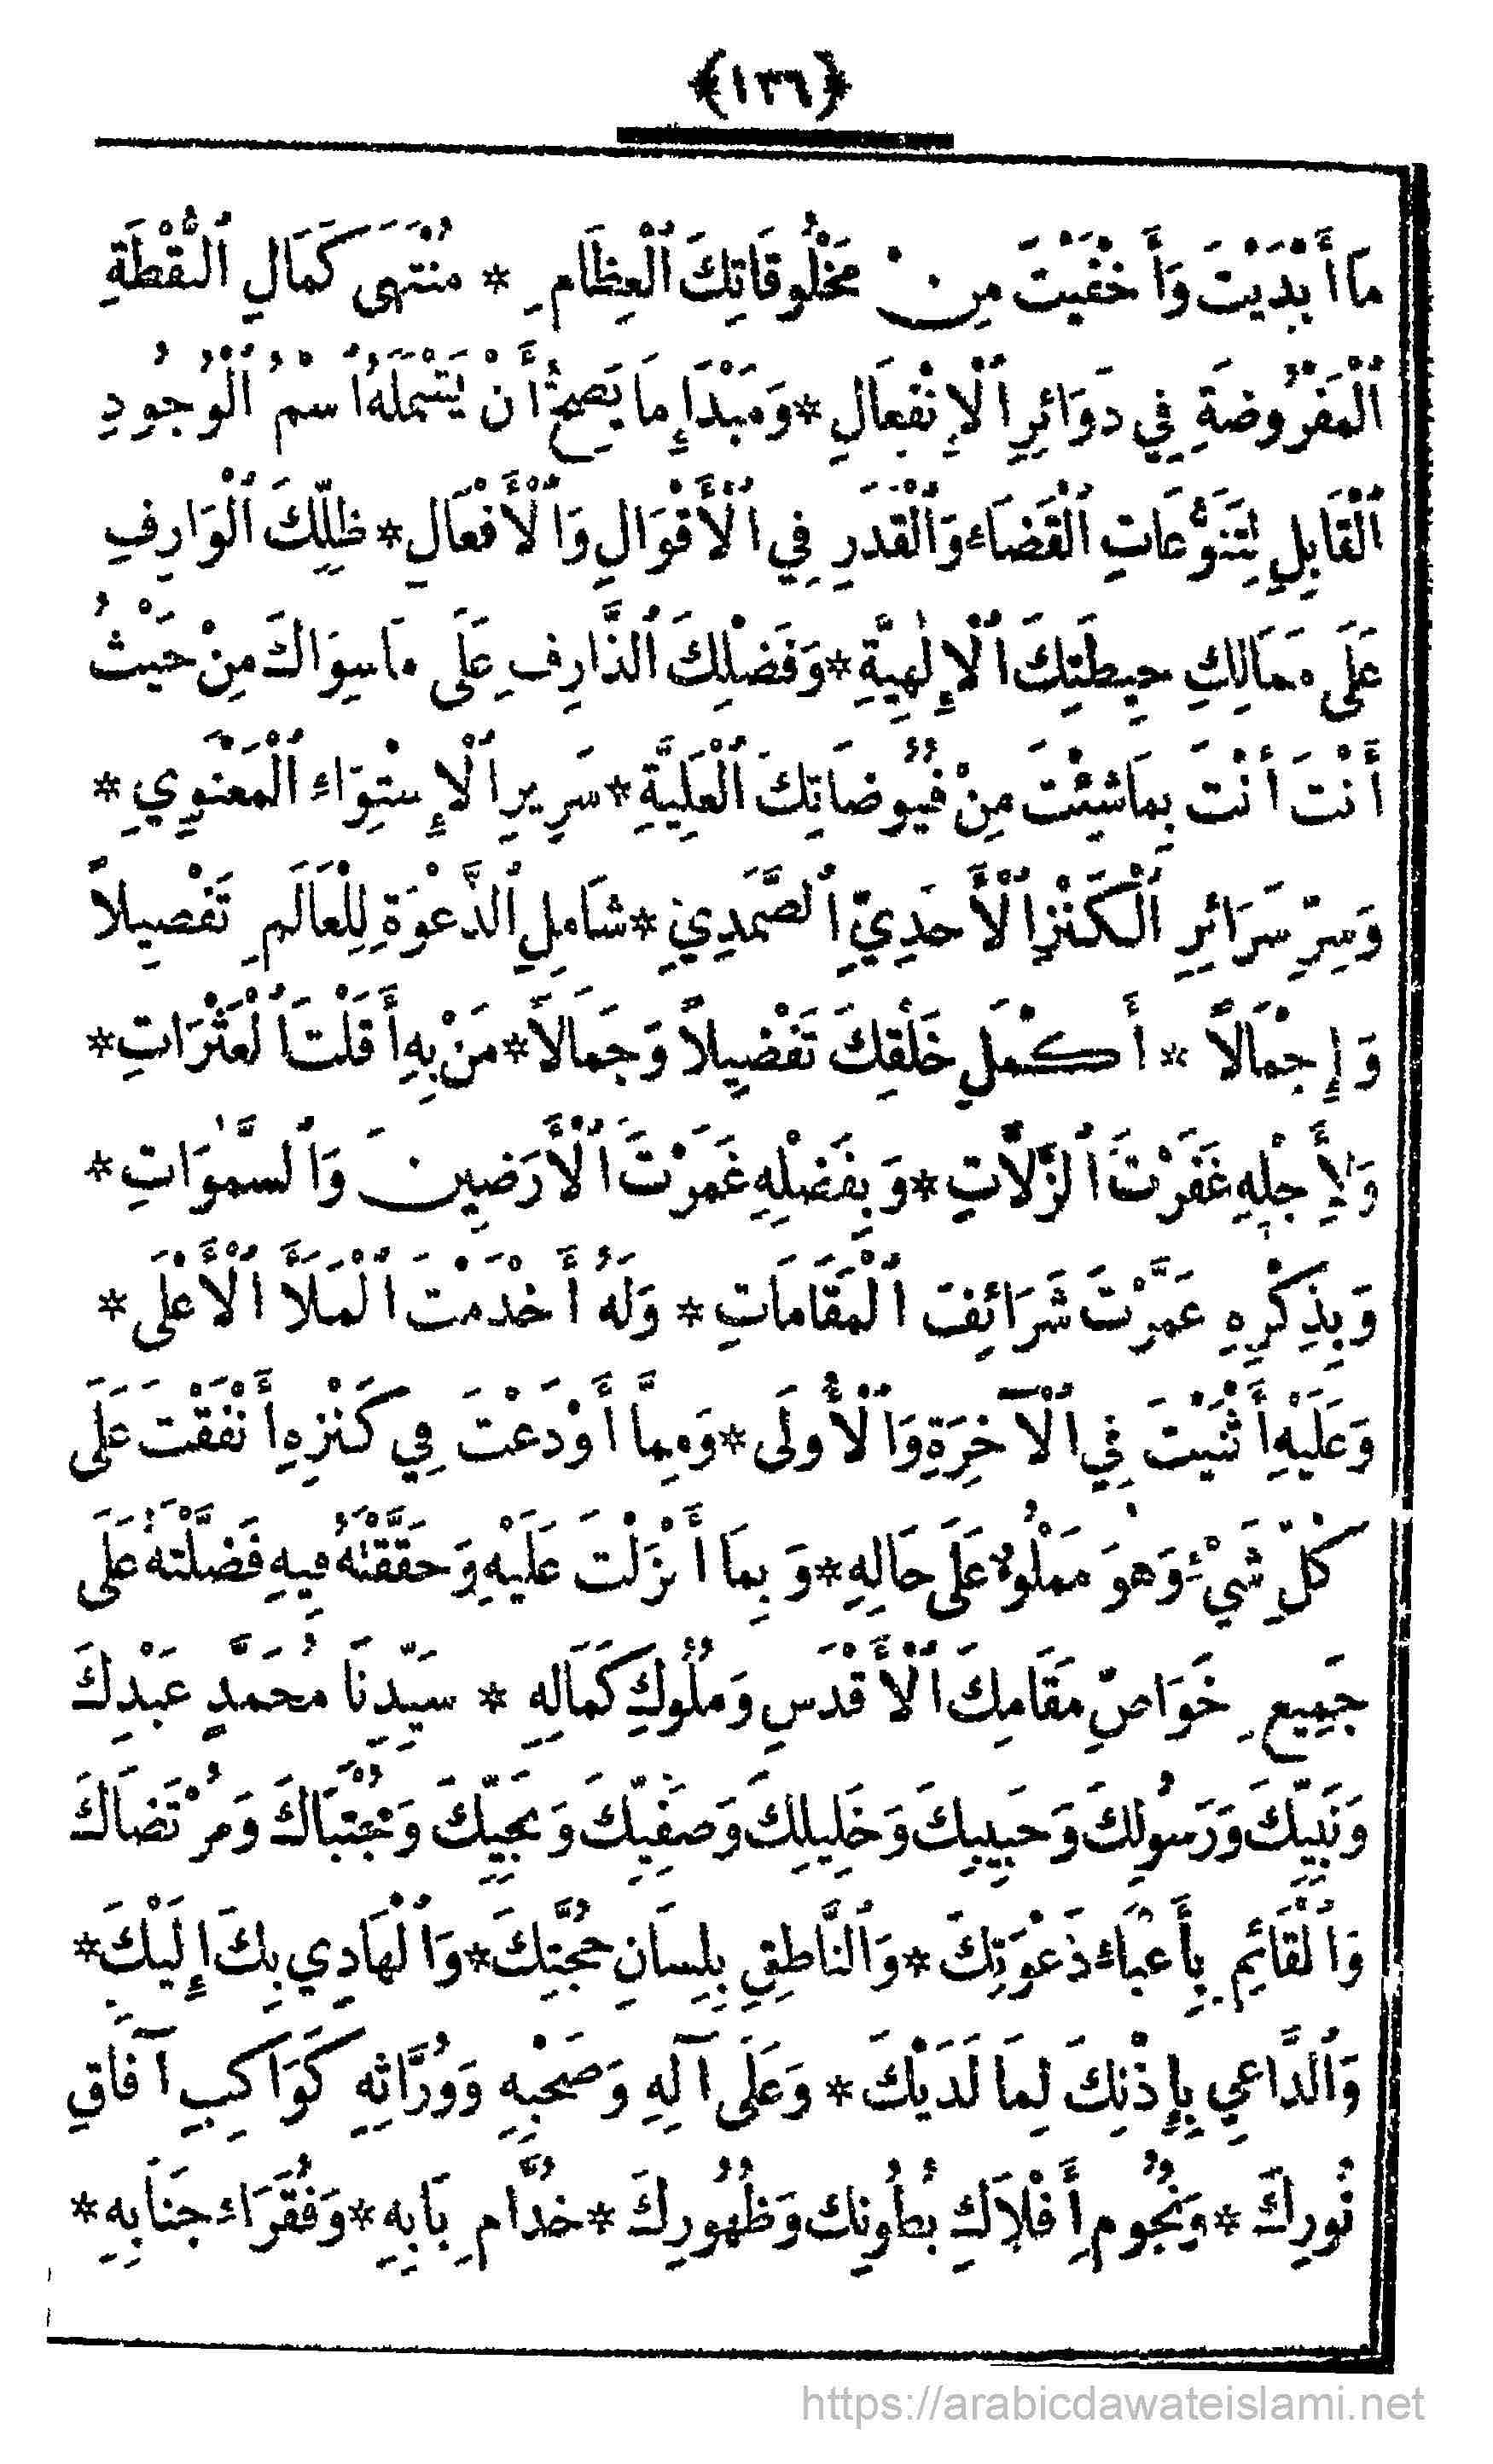 ﴿١٣٦﴾
مَا أَبْدَيْتَ وَأَخْفَيْتَ مِنْ مَخْلُوقَاتِكَ ٱلْعِظَامِ * مُنْتَهَى كَمَالِ ٱلنُّقْطَةِ
ٱلْمَفْرُوضَةِ فِي دَوَائِرِ ٱلْإِنْفِعَالِ * وَمَبْدَإِ مَا يَصِحُّ أَنْ يَشْمَلَهُ ٱسْمُ ٱلْوُجُودِ
ٱلْقَابِلِ لِتَنَوُّعَاتِ ٱلْقَضَاءِ وَٱلْقَدَرِ فِي ٱلْأَقْوَالِ وَٱلْأَفْعَالِ * ظِلِّكَ ٱلْوَارِفِ
عَلَى مَمَالِكِ حِيطَتِكَ ٱلْإِلٰهِيَّةِ * وَفَضْلِكَ ٱلذَّارِفِ عَلَى مَا سِوَاكَ مِنْ حَيْثُ
أَنْتَ أَنْتَ بِمَا شِئْتَ مِنْ فُيُوضَاتِكَ ٱلْعَلِيَّةِ * سَرِيرِ ٱلْإِسْتِوَاءِ ٱلْمَعْنَوِيِّ *
وَسِرِّ سَرَائِرِ ٱلْكَنْزِ ٱلْأَحَدِيِّ ٱلصَّمَدِيِّ * شَامِلِ ٱلدَّعْوَةِ لِلْعَالَمِ تَفْصِيلاً
وَإِجْمَالاً * أَكْمَلِ خَلْقِكَ تَفْضِيلاً وَجَمَالاً * مَنْ بِهِ أَقَلْتَ ٱلْعَثَرَاتِ *
وَلِأَجْلِهِ غَفَرْتَ ٱلزَّلَّاتِ * وَبِفَضْلِهِ غَمَرْتَ ٱلْأَرَضِينَ وَٱلسَّمٰوَاتِ *
وَبِذِكْرِهِ عَمَّرْتَ شَرَائِفَ ٱلْمَقَامَاتِ * وَلَهُ أَخْدَمْتَ ٱلْمَلَأَ ٱلْأَعْلَى *
وَعَلَيْهِ أَثْنَيْتَ فِي ٱلْآخِرَةِ وَٱلْأُولَى * وَمِمَّا أَوْدَعْتَ فِي كَنْزِهِ أَنْفَقْتَ عَلَى
كُلِّ شَيْءٍ وَهُوَ مَمْلُوءٌ عَلَى حَالِهِ * وَبِمَا أَنْزَلْتَ عَلَيْهِ وَحَقَّقْتَهُ فِيهِ فَضَّلْتَهُ عَلَى
جَمِيعِ خَوَاصِّ مَقَامِكَ ٱلْأَقْدَسِ وَمُلُوكِ كَمَالِهِ * سَيِّدِنَا مُحَمَّدٍ عَبْدِكَ
وَنَبِيِّكَ وَرَسُولِكَ وَحَبِيبِكَ وَخَلِيلِكَ وَصَفِيِّكَ وَنَجِيِّكَ وَمُجْتَبَاكَ وَمُرْتَضَاكَ
وَٱلْقَائِمِ بِأَعْبَاءِ دَعْوَتِكَ * وَٱلنَّاطِقِ بِلِسَانِ حُجَّتِكَ * وَٱلْهَادِي بِكَ إِلَيْكَ *
وَٱلدَّاعِي بِإِذْنِكَ لِمَا لَدَيْكَ * وَعَلَى آلِهِ وَصَحْبِهِ وَوُرَّاثِهِ كَوَاكِبِ آفَاقِ
نُورِكَ * وَنُجُومِ أَفْلَاكِ بُطُونِكَ وَظُهُورِكَ * خُدَّامِ بَابِهِ * وَفُقَرَاءِ جَنَابِهِ *
https://arabicdawateislami.net